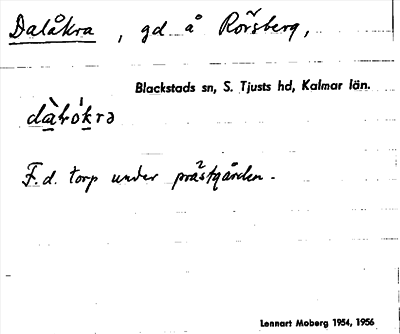 Dalåkra, gd å Rörsberg,
Blackstads sn, S. Tjusts hd, Kalmar län.
F. d. torp under prästgården.
Lennart Moberg 1954, 1956